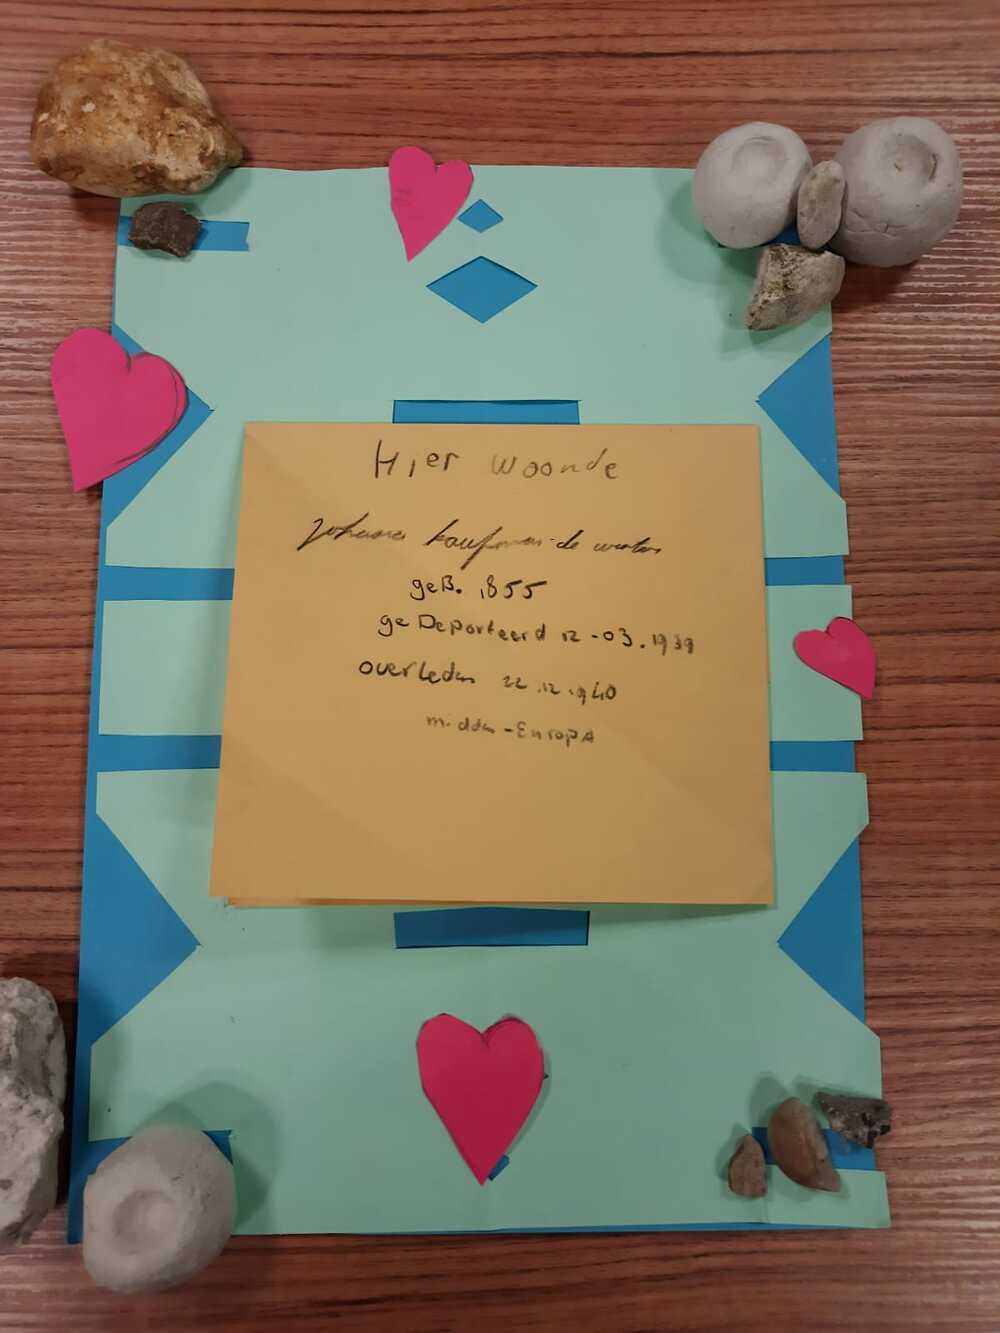 Hier woonde
Johanna kaufman-de
geB. 1855
geDeporteerd 12-03.1939
overleden 22.12.1940
midden-EuropA